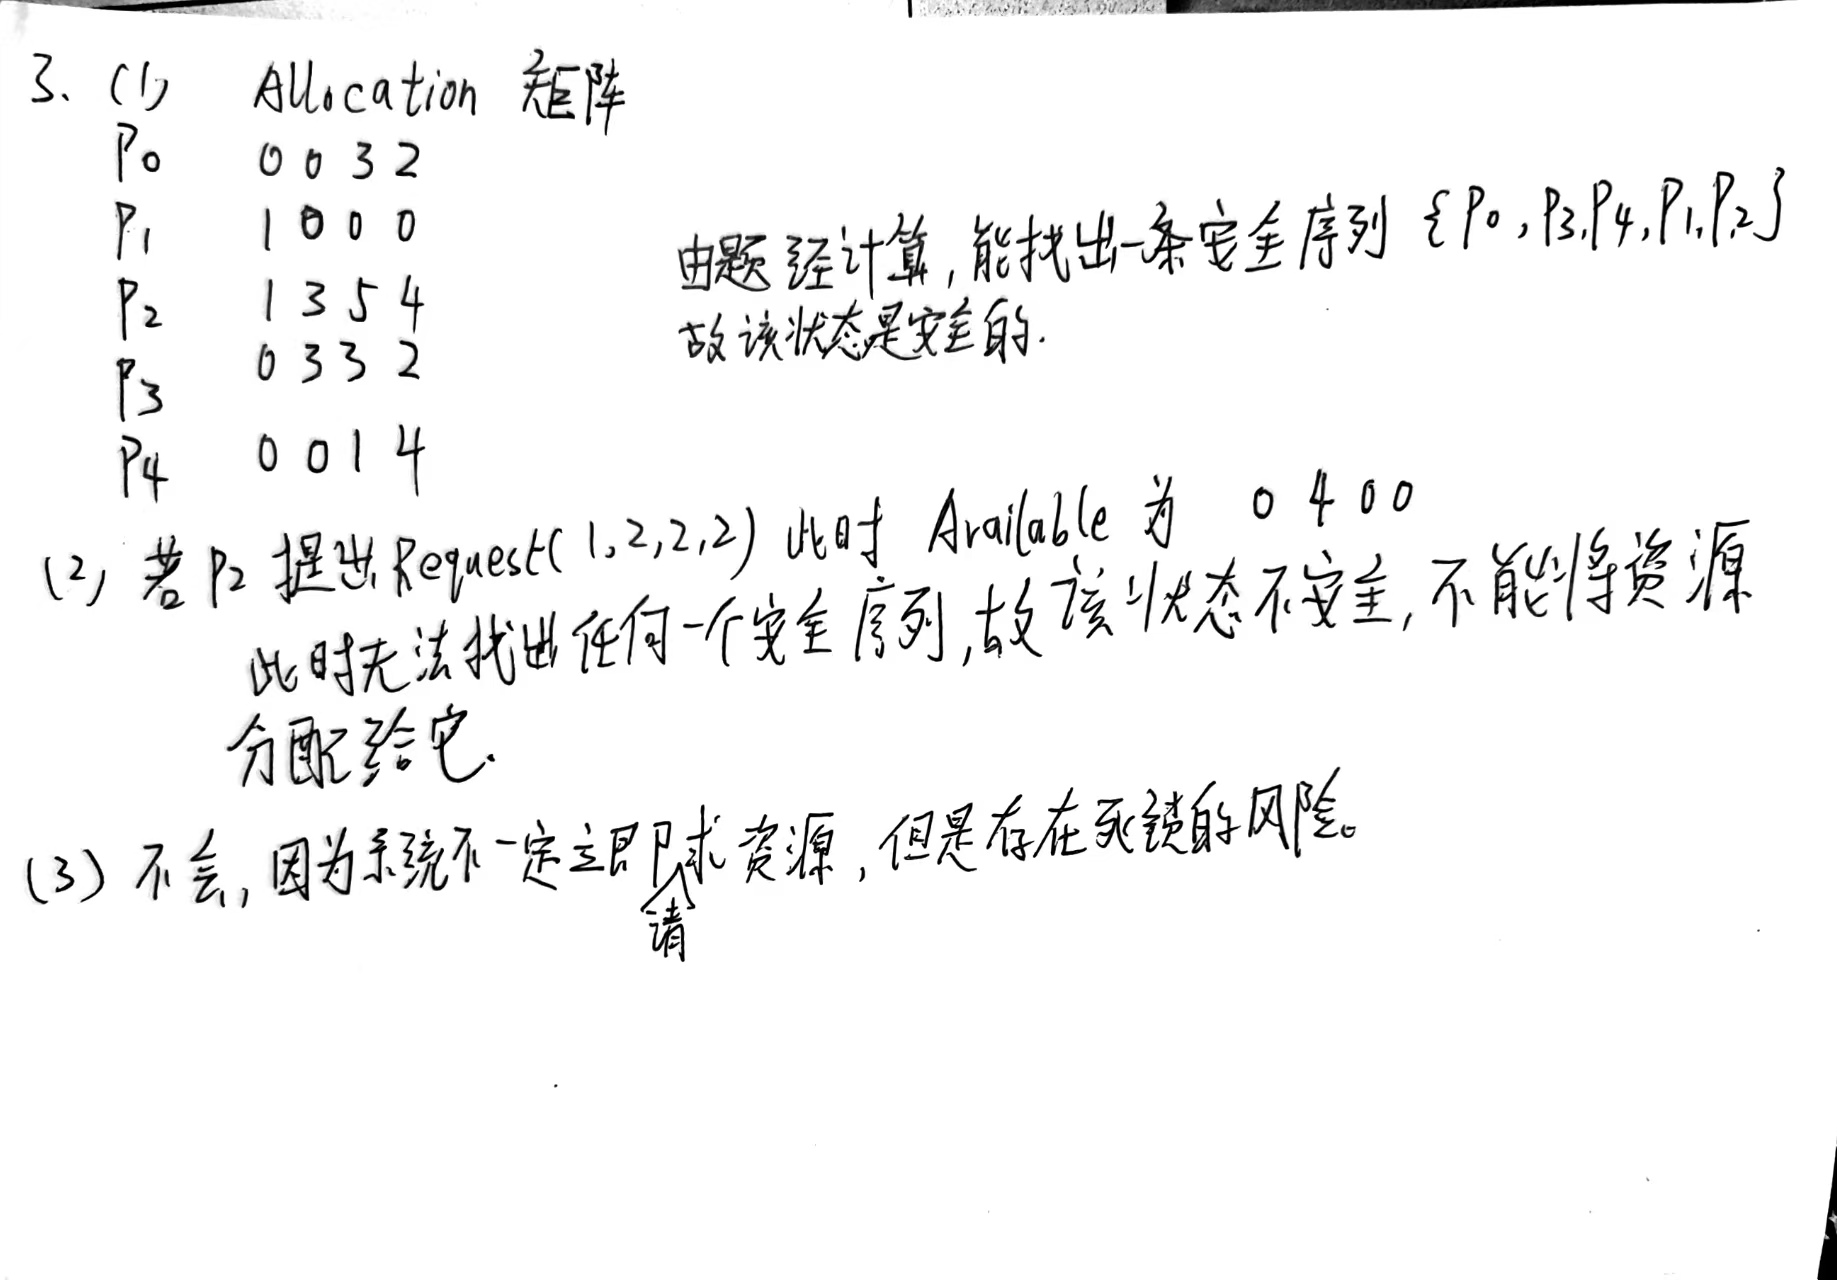 3、(1) Allocation 矩阵
P0 0 0 3 2
P1 1 0 0 0
P2 1 3 5 4
P3 0 3 3 2
P4 0 0 1 4
由题经计算,能找出一条安全序列 {P0,P3,P4,P1,P2}
故该状态是安全的.
(2) 若P2提出Request(1,2,2,2) 此时 Available 为 0 4 0 0
此时无法找出任何一个安全序列,故该状态不安全,不能将资源
分配给它.
(3) 不会,因为系统不一定立即请求资源,但是存在死锁的风险。